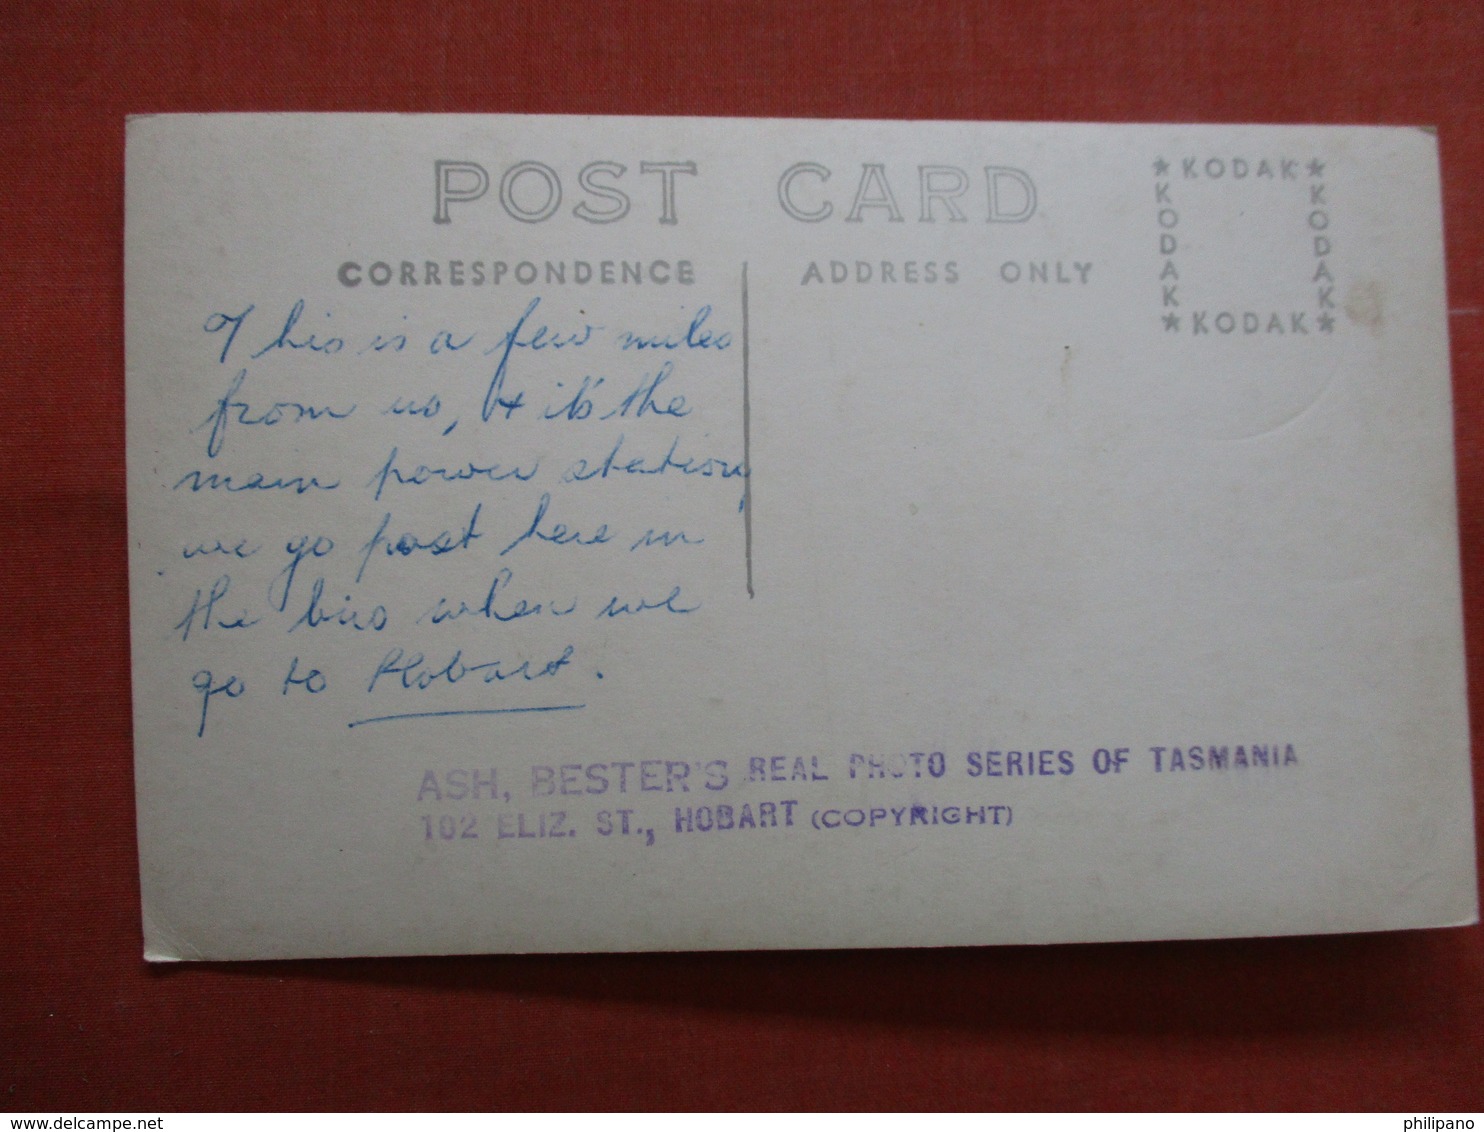 POST CARD
CORRESPONDENCE
ADDRESS ONLY
★KODAK★
KODAK
KODAK
★KODAK★
This is a few miles
from us, + it's the
main power station,
we go past here in
the bus when we
go to Hobart.
ASH, BESTER'S REAL PHOTO SERIES OF TASMANIA
102 ELIZ. ST., HOBART (COPYRIGHT)
www.delcampe.net
philipano